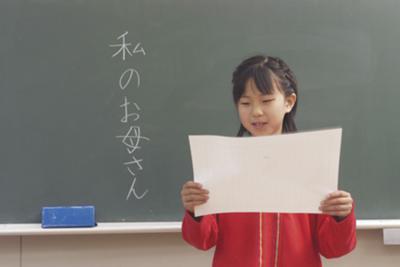 私のお母さん